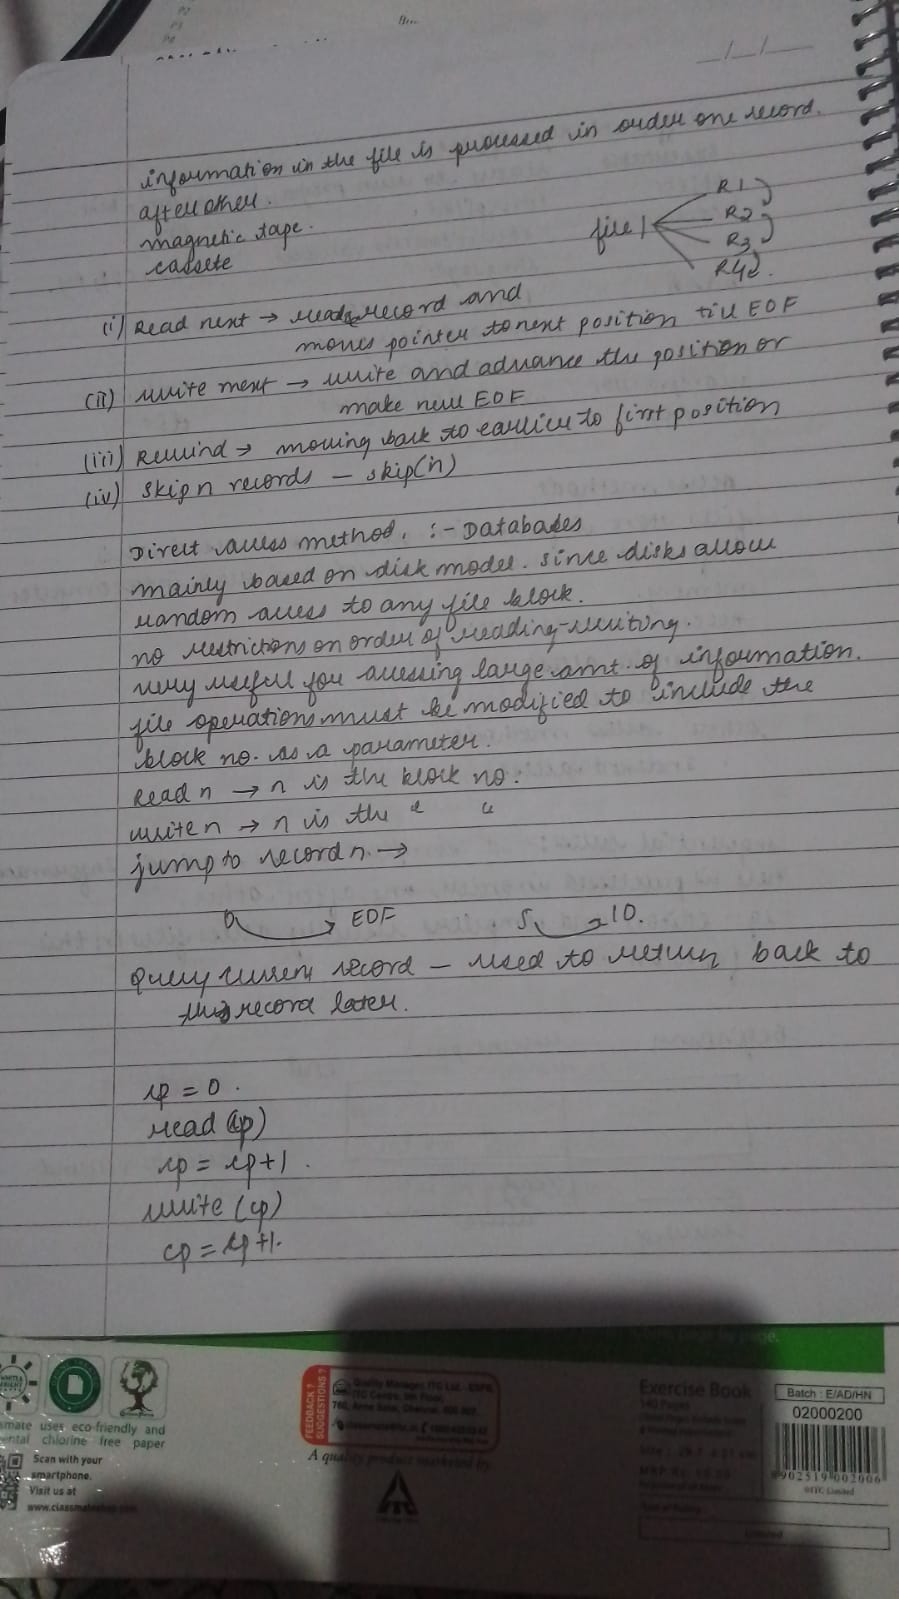 information in the file is processed in order one record.
after other.
magnetic tape.
cassete
file
R1
R2
R3
R4
(i) Read next → read record and
moves pointer to next position till EOF
(ii) write next → write and advance the position or
make new EOF
(iii) Rewind → moving back to earlier to first position
(iv) Skip n records – skip(n)
Direct access method. :- Databases
mainly based on disk model. since disks allow
random access to any file block.
no restrictions on order of reading-writing.
very useful for accessing large amt. of information.
file operations must be modified to include the
block no. as a parameter.
Read n → n is the block no.
write n → n is the " "
jump to record n. →
0 EOF 5 10.
Query current record – used to return back to
this record later.
cp = 0.
read (cp)
cp = cp+1.
write (cp)
cp = cp+1.
uses eco-friendly and
chlorine free paper
Scan with your
smartphone.
Visit us at
FEEDBACK ?
SUGGESTIONS ?
Quality Manager, ITC Ltd. - ESPB,
ITC Centre, 5th Floor,
760, Anna Salai, Chennai, 600 002.
A quality product marketed by
Exercise Book
Batch : E/AD/HN
02000200
8 902519 002006
©ITC Limited
Limited